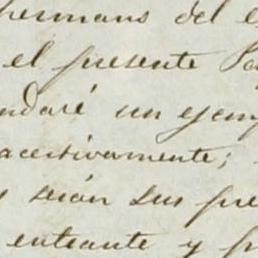 hermans del e
el presente Pa
ndaré un ejem
acestivamente;
s seián sus pre
entrante y p